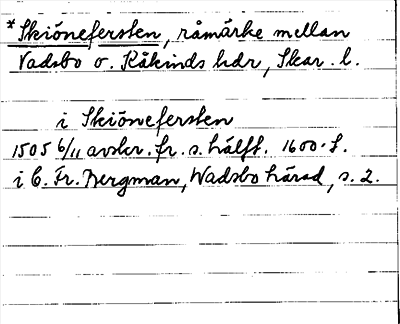 * Skiönefersten, råmärke mellan
Vadsbo o. Kåkinds hdr, Skar. l.
i Skiönefersten
1505 6/11 avskr. fr. s. hälft. 1600-t.
i C. Fr. Bergman, Wadsbo härad, s. 2.